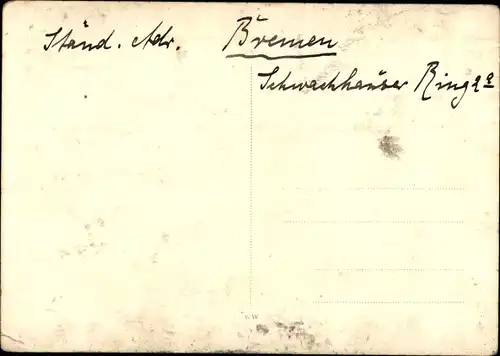 Ständ. Adr. Bremen
Schwachhauser Ring